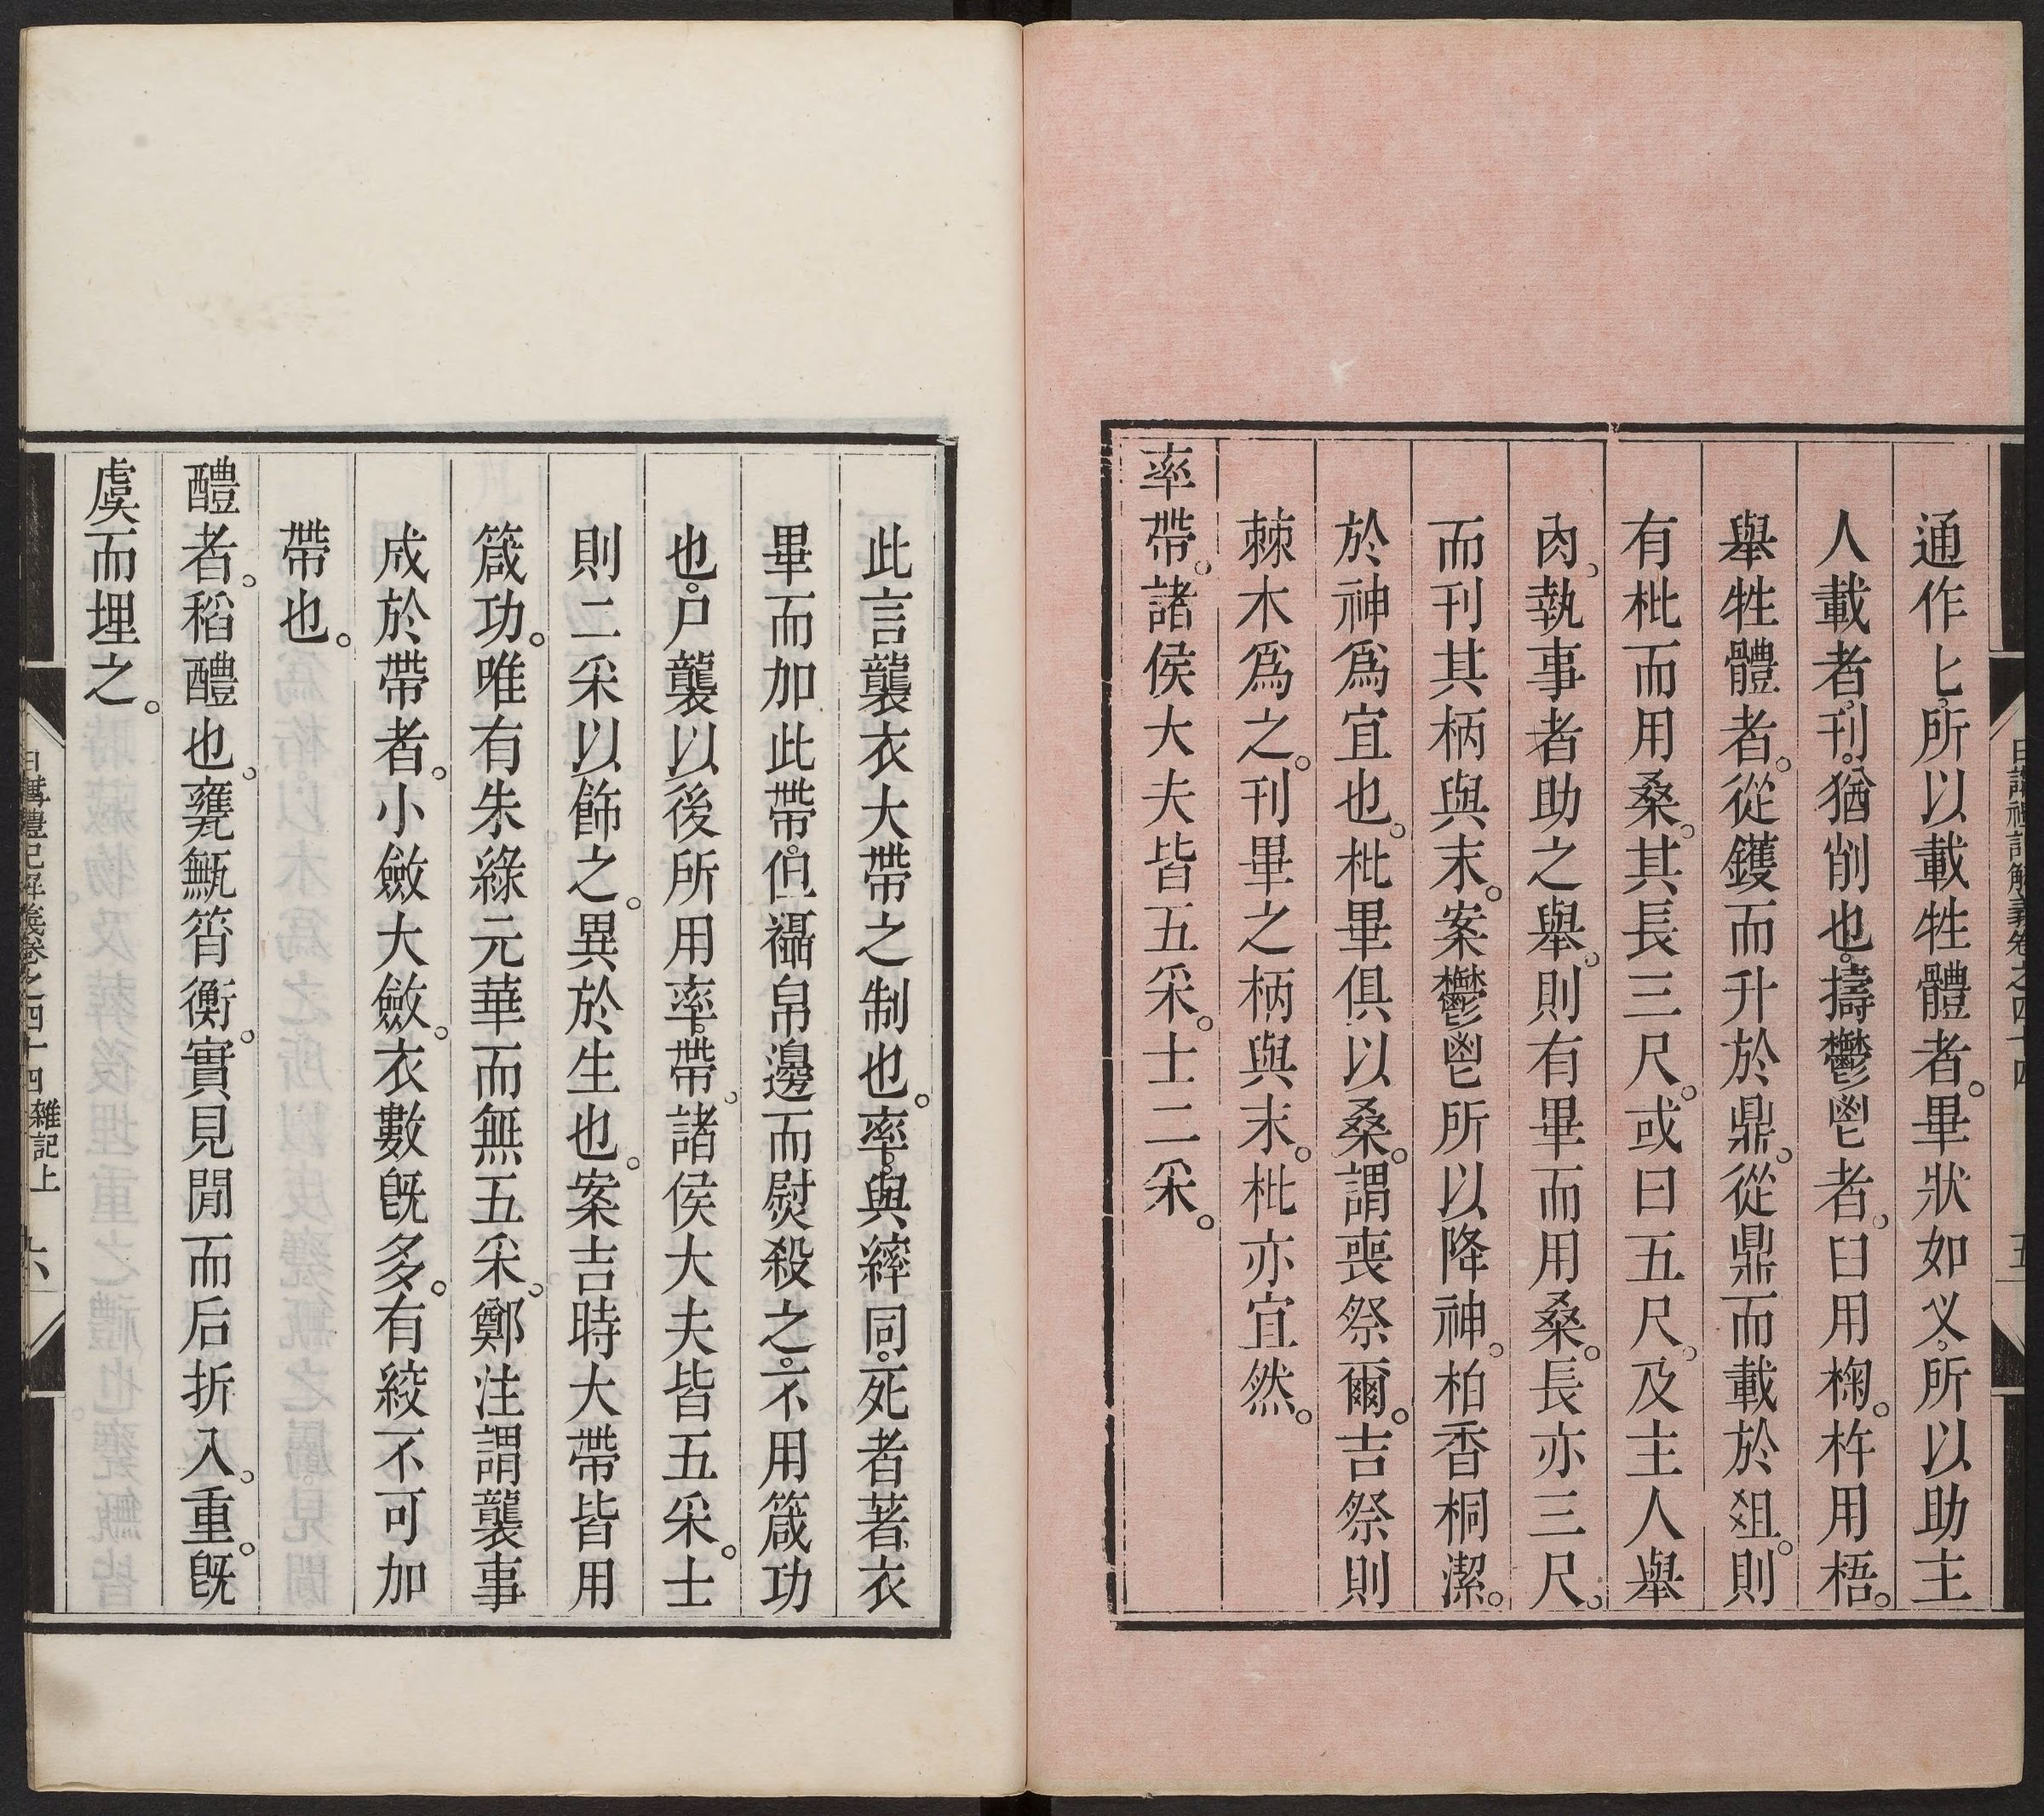 日講禮記解義卷之四十四
五
通作匕。所以載牲體者。畢狀如义。所以助主
人載者。刊。猶削也。擣鬱鬯者。臼用椈。杵用梧。
舉牲體者。從鑊而升於鼎。從鼎而載於俎。則
有枇而用桑。其長三尺。或曰五尺。及主人舉
肉。執事者助之舉。則有畢而用桑。長亦三尺。
而刊其柄與末。案鬱鬯所以降神。柏香桐潔。
於神爲宜也。枇畢俱以桑。謂喪祭爾。吉祭則
棘木爲之。刊畢之柄與末。枇亦宜然。
率帶。諸侯大夫皆五采。士二采。
此言襲衣大帶之制也。率。與繂同。死者著衣
畢而加此帶。但襵帛邊而熨殺之。不用箴功
也。尸襲以後所用率。帶。諸侯大夫皆五采。士
則二采以飾之。異於生也。案吉時大帶皆用
箴功。唯有朱綠元華而無五采。鄭注謂襲事
成於帶者。小斂大斂。衣數旣多。有絞不可加
帶也。
醴者。稻醴也。甕甒筲衡。實見閒而后折入。重。旣
虞而埋之。
日講禮記解義卷之四十四 雜記上
六